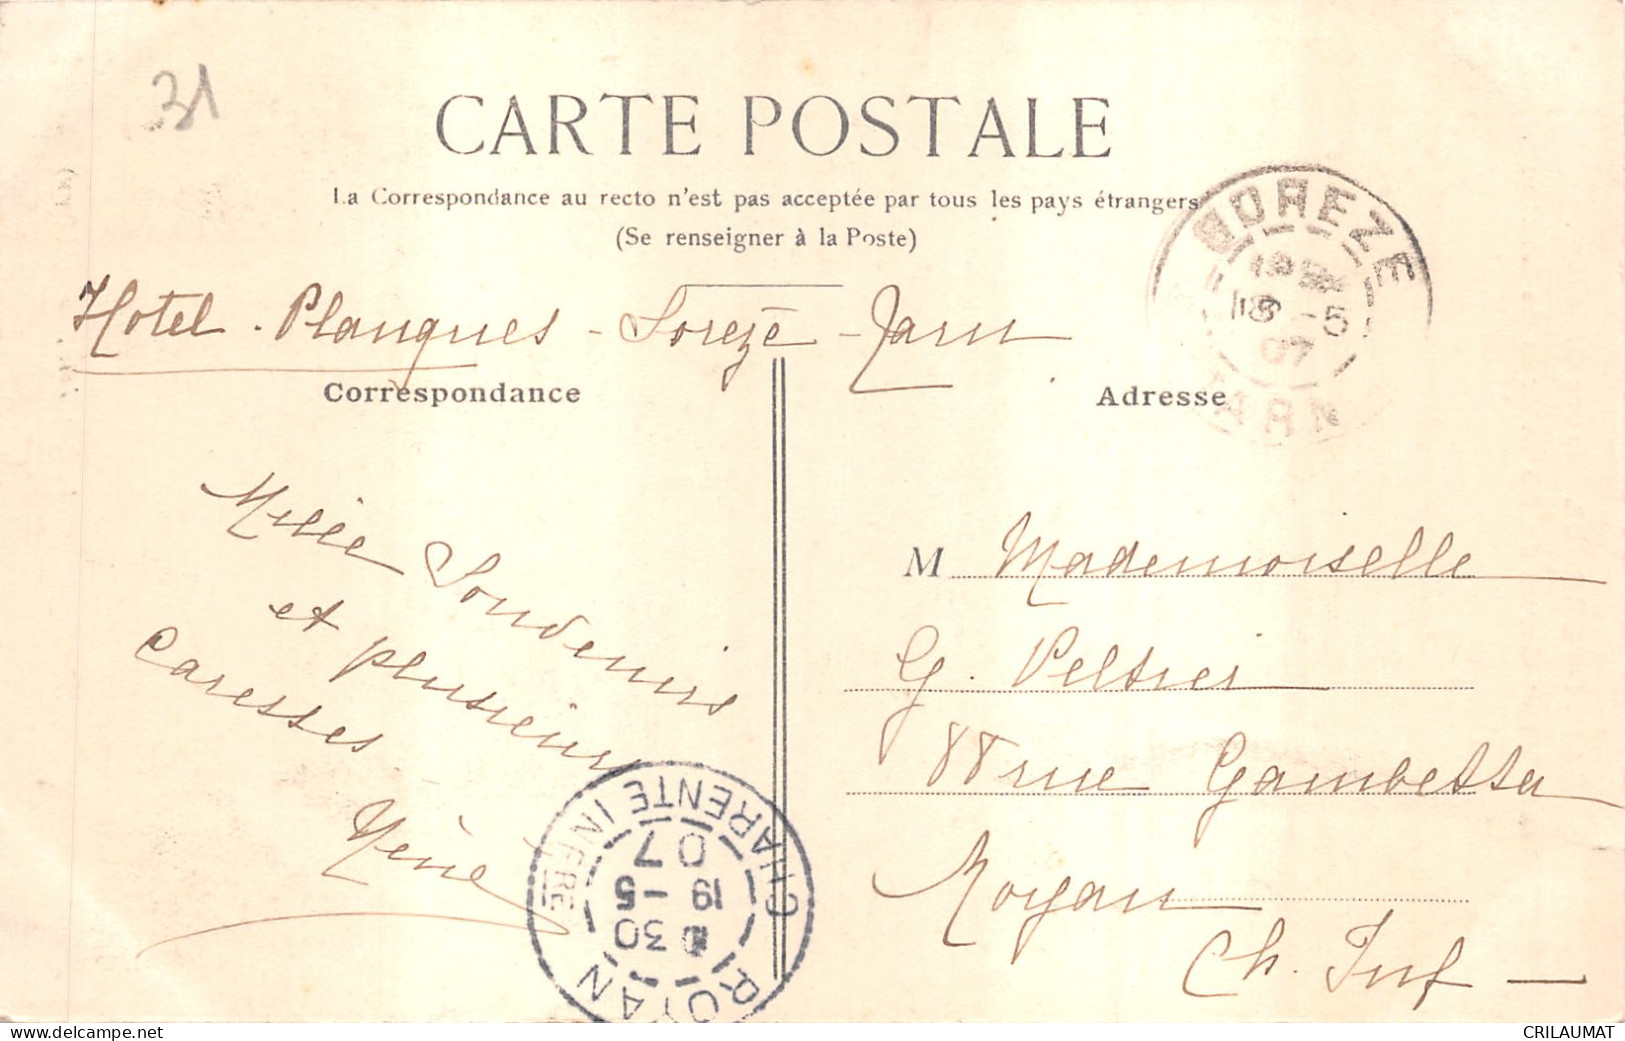 31
CARTE POSTALE
La Correspondance au recto n'est pas acceptée par tous les pays étrangers
(Se renseigner à la Poste)
SOREZE
18 -5
07
TARN
Hotel - Planques - Sorezè - Tarn
Correspondance
Adresse
Mille Souvenirs
et plusieurs
Caresses
Réné
M Mademoiselle
G. Peltier
88 rue Gambetta
Royan
Ch. Inf
ROYAN
CHARENTE INFRE
30
19 -5
07
CRILAUMAT